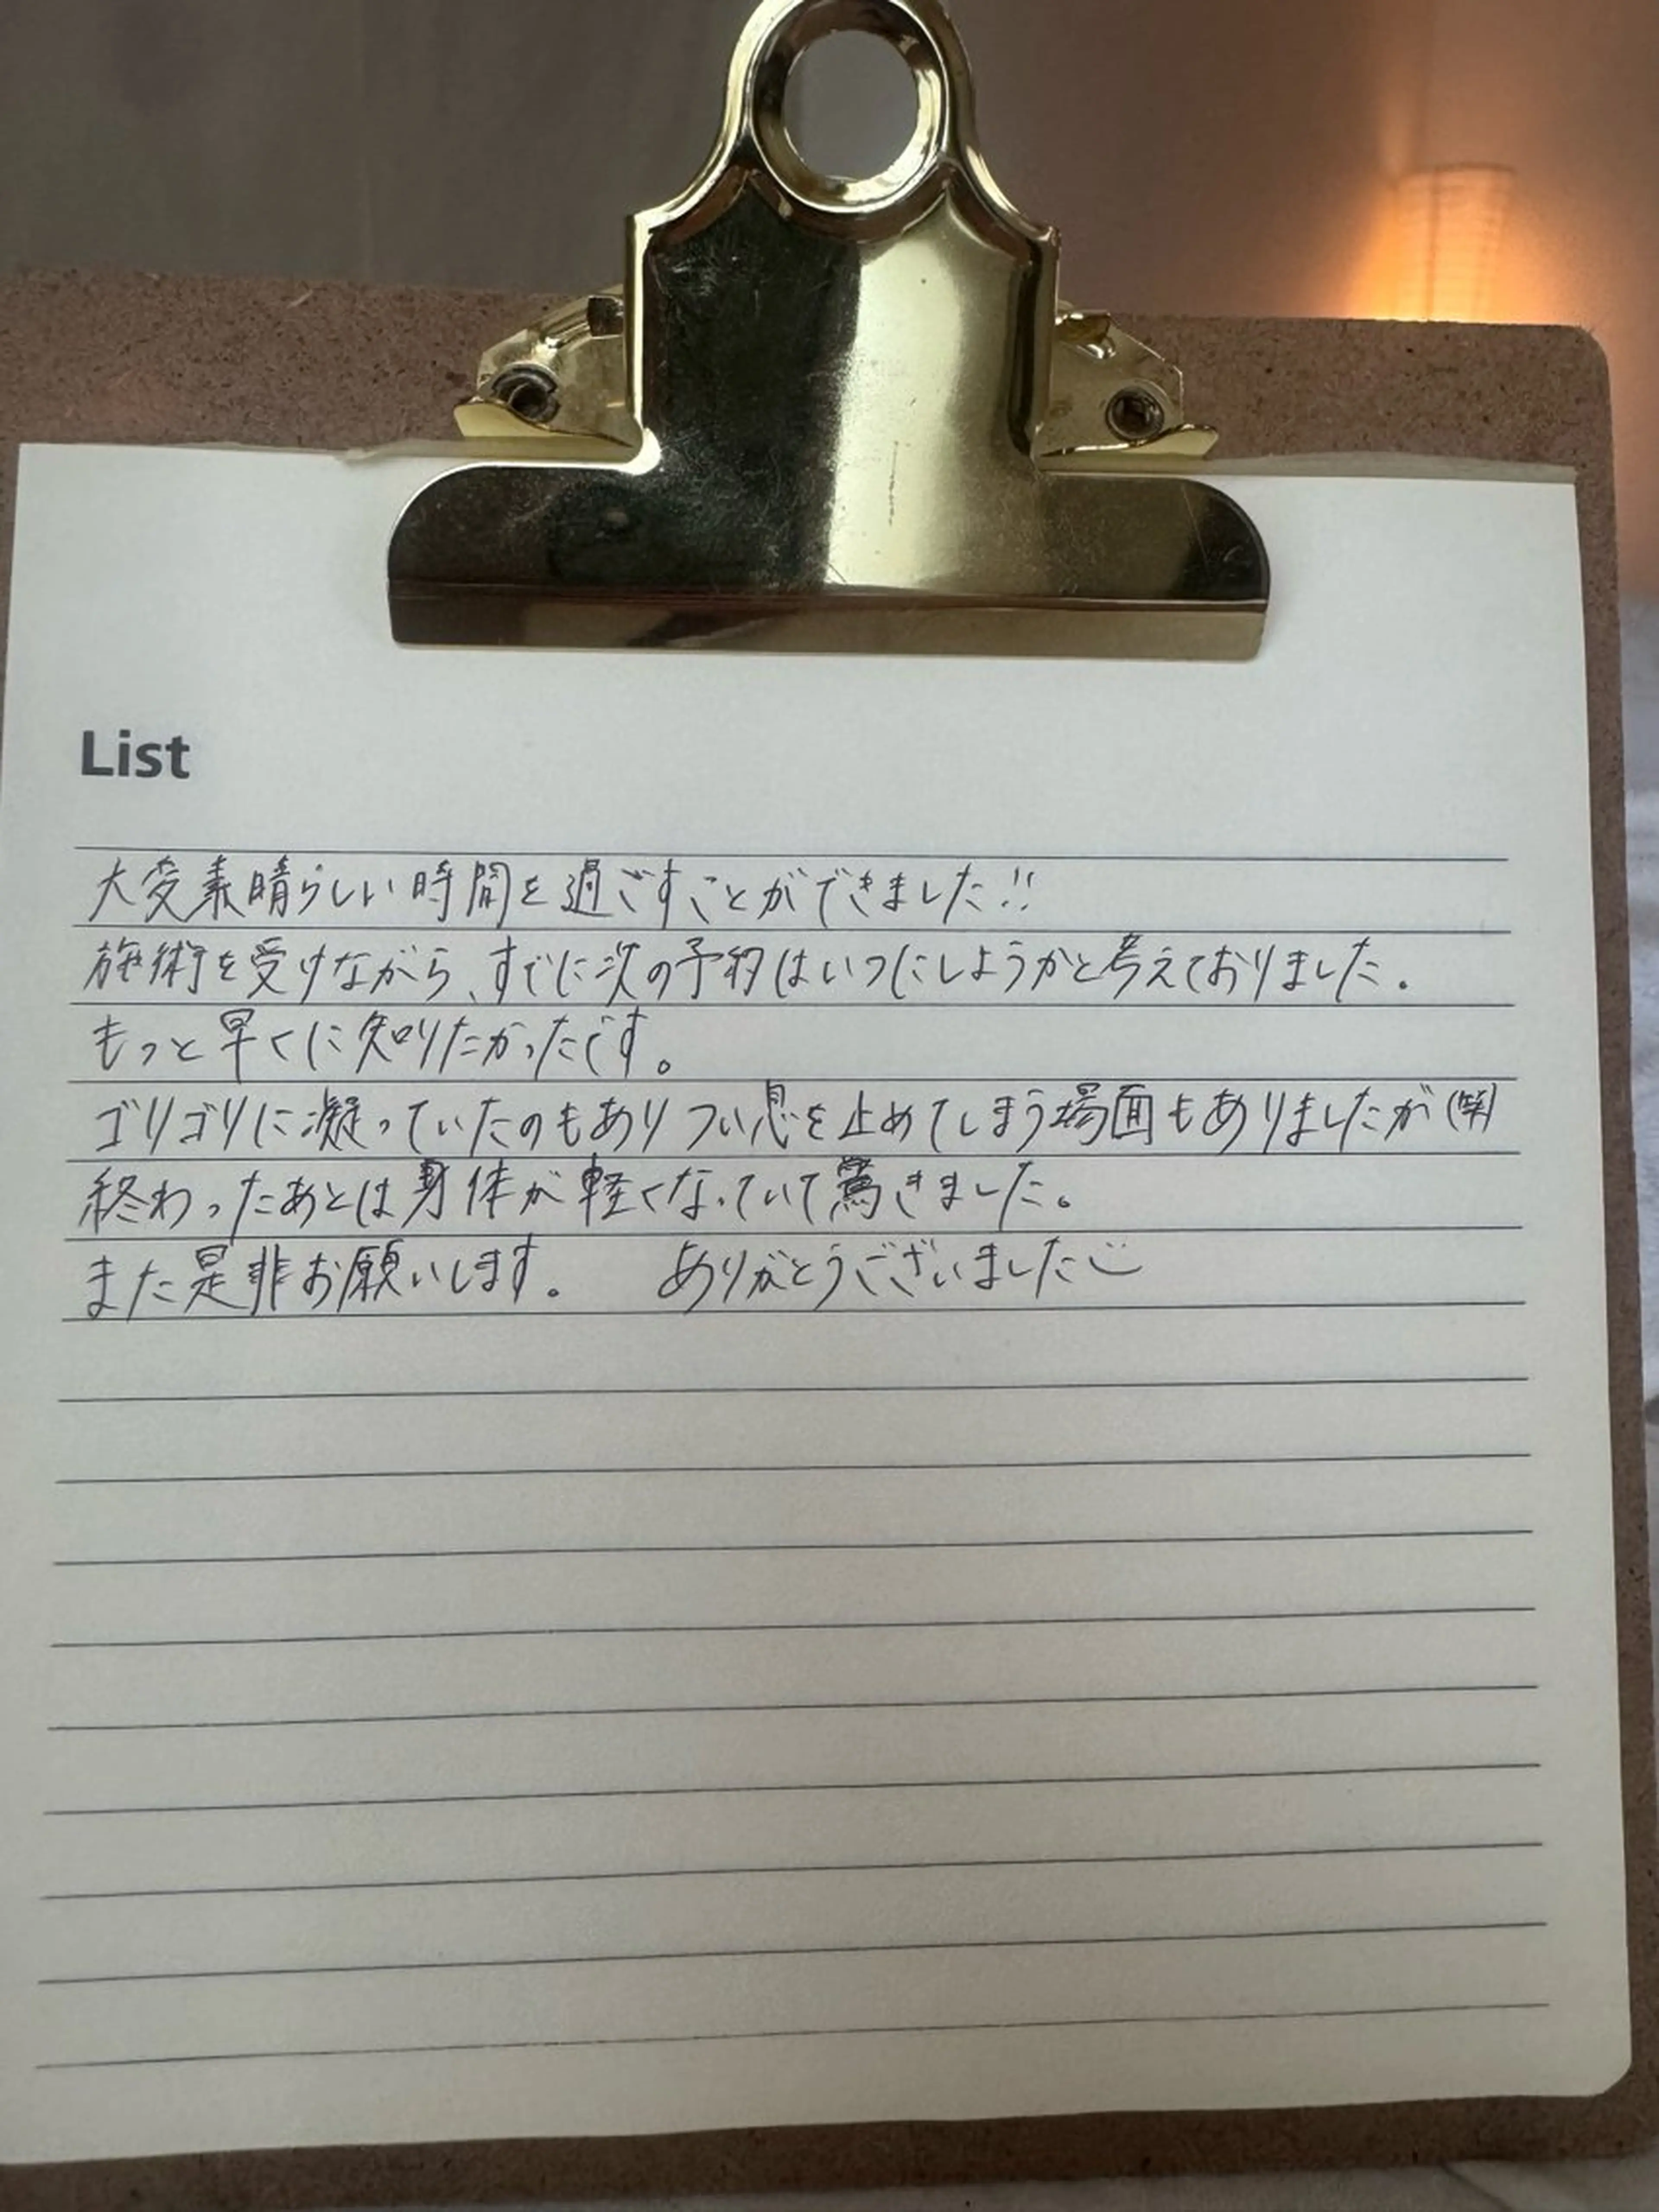 List
大変素晴らしい時間を過ごすことができました!!
施術を受けながら、すでに次の予約はいつにしようかと考えておりました。
もっと早くに知りたかったです。
ゴリゴリに凝っていたのもありつい息を止めてしまう場面もありましたが(笑)
終わったあとは身体が軽くなっていて驚きました。
また是非お願いします。 ありがとうございました